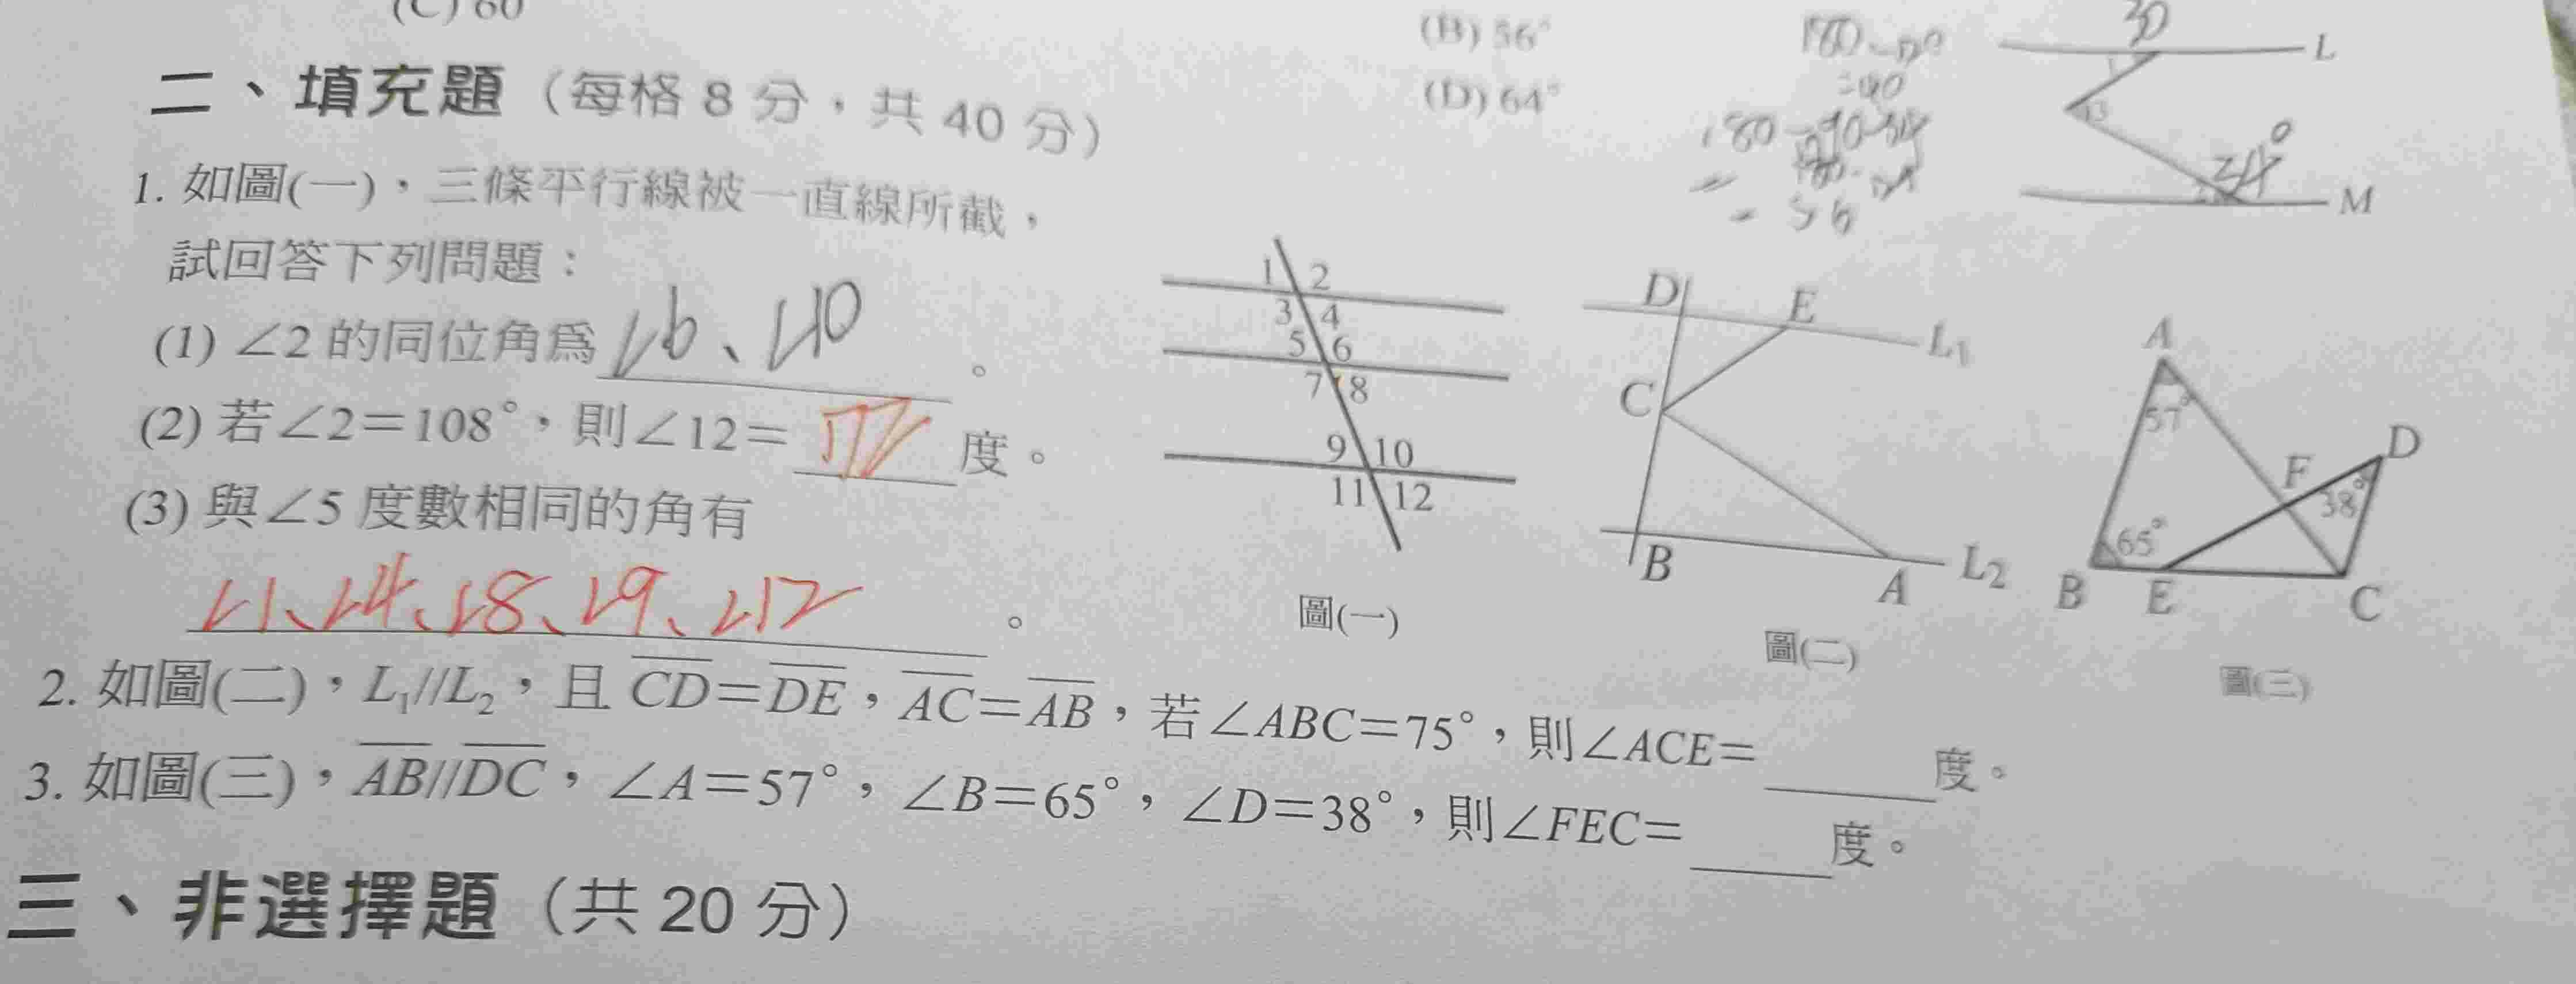 (C) 60
(B) 56°
(D) 64°
二、填充題（每格 8 分，共 40 分）
1. 如圖(一)，三條平行線被一直線所截，
試回答下列問題：
(1) ∠2 的同位角為 ∠6、∠10 。
(2) 若∠2＝108°，則∠12＝ 72 度。
(3) 與∠5 度數相同的角有
∠1、∠4、∠8、∠9、∠12 。
180
=40
= 56
30
L
24°
M
1 2
3 4
5 6
7 8
9 10
11 12
圖(一)
D E L1
C
B A L2
圖(二)
A
57°
F D
38°
65°
B E C
圖(三)
2. 如圖(二)，L₁//L₂，且 CD＝DE，AC＝AB，若∠ABC＝75°，則∠ACE＝ 度。
3. 如圖(三)，AB//DC，∠A＝57°，∠B＝65°，∠D＝38°，則∠FEC＝ 度。
三、非選擇題（共 20 分）